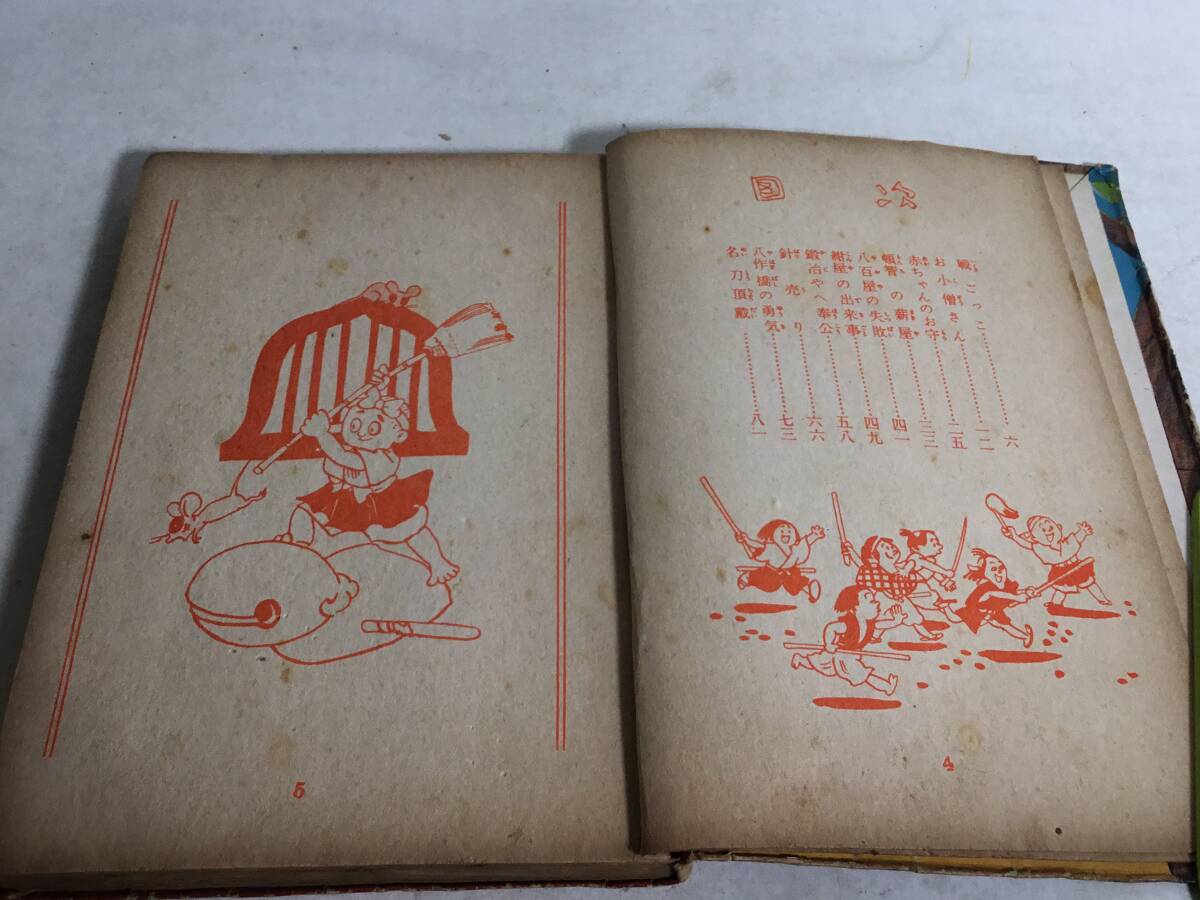 目次
戦ごっこ………六
お小僧さん………一二
赤ちゃんのお守………二五
頓智の薪屋………三三
八百屋の失敗………四一
紺屋の出来事………四九
鍛冶やへ奉公………五八
針売り………六六
八作橋の勇気………七三
名刀頂戴………八一
4
5